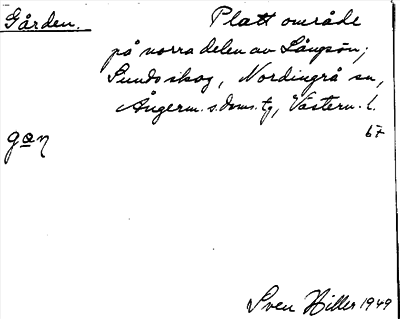 Gården. Platt område
på norra delen av Långsön;
Sundsskog, Nordingrå sn,
Ångerm. s. doms. tg, Västern. l.
67
Sven Hiller 1949